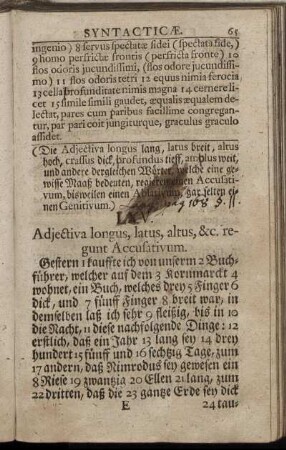 SYNTACTICÆ. 65
ingenio) 8 servus spectatæ fidei (spectata fide,)
9 homo perfrictæ frontis (perfricta fronte) 10
flos odoris jucundissimi, (flos odore jucundissi-
mo) 11 flos odoris tetri 12 equus nimia ferocia,
13 cella profunditate nimis magna 14 cernere li-
cet 15 simile simili gaudet, æqualis æqualem de-
lectat, pares cum paribus facillime congregan-
tur, par pari coit jungiturque, graculus graculo
assidet.
(Die Adjectiva longus lang, latus breit, altus
hoch, crassus dick, profundus tieff, amplus weit,
und andere dergleichen Wörter, welche eine ge-
wisse Maaß bedeuten, regieren einen Accusati-
vum, bisweilen einen Ablativum, gar selten ei-
nen Genitivum.)
Adjectiva longus, latus, altus, &c. re-
gunt Accusativum.
Gestern 1 kauffte ich von unserm 2 Buch-
führer, welcher auf dem 3 Kornmarckt 4
wohnet, ein Buch, welches drey 5 Finger 6
dick, und 7 fünff Finger 8 breit war, in
demselben laß ich sehr 9 fleißig, biß in 10
die Nacht, 11 diese nachfolgende Dinge: 12
erstlich, daß ein Jahr 13 lang sey 14 drey
hundert 15 fünff und 16 sechtzig Tage, zum
17 andern, daß Nimrodus sey gewesen ein
18 Riese 19 zwantzig 20 Ellen 21 lang, zum
22 dritten, daß die 23 gantze Erde sey dick
E 24 tau-